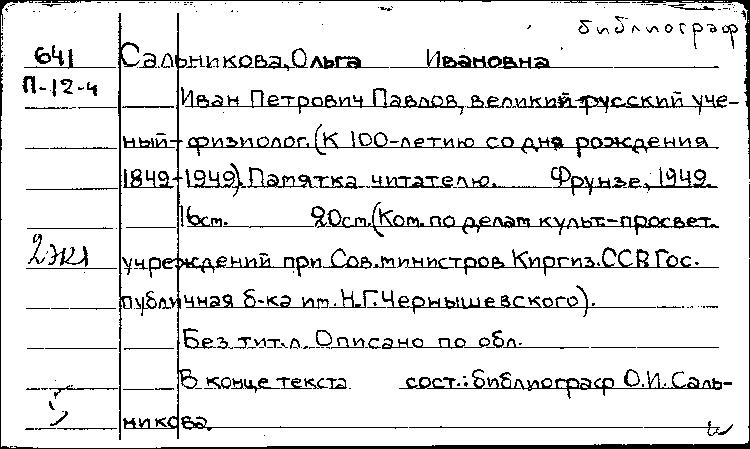 библиограф
641 Сальникова, Ольга Ивановна
П-12-4
Иван Петрович Павлов, великий русский уче-
ный-физиолог. (К 100-летию со дня рождения
1849-1949). Памятка читателю. Фрунзе, 1949.
16 ст. 20 ст. (Ком. по делам культ.-просвет.
2 экз учреждений при Сов. министров Киргиз. ССР. Гос.
публичная б-ка им. Н.Г. Чернышевского).
Без тит. л. Описано по обл.
В конце текста сост.: библиограф О.И. Саль-
никова.